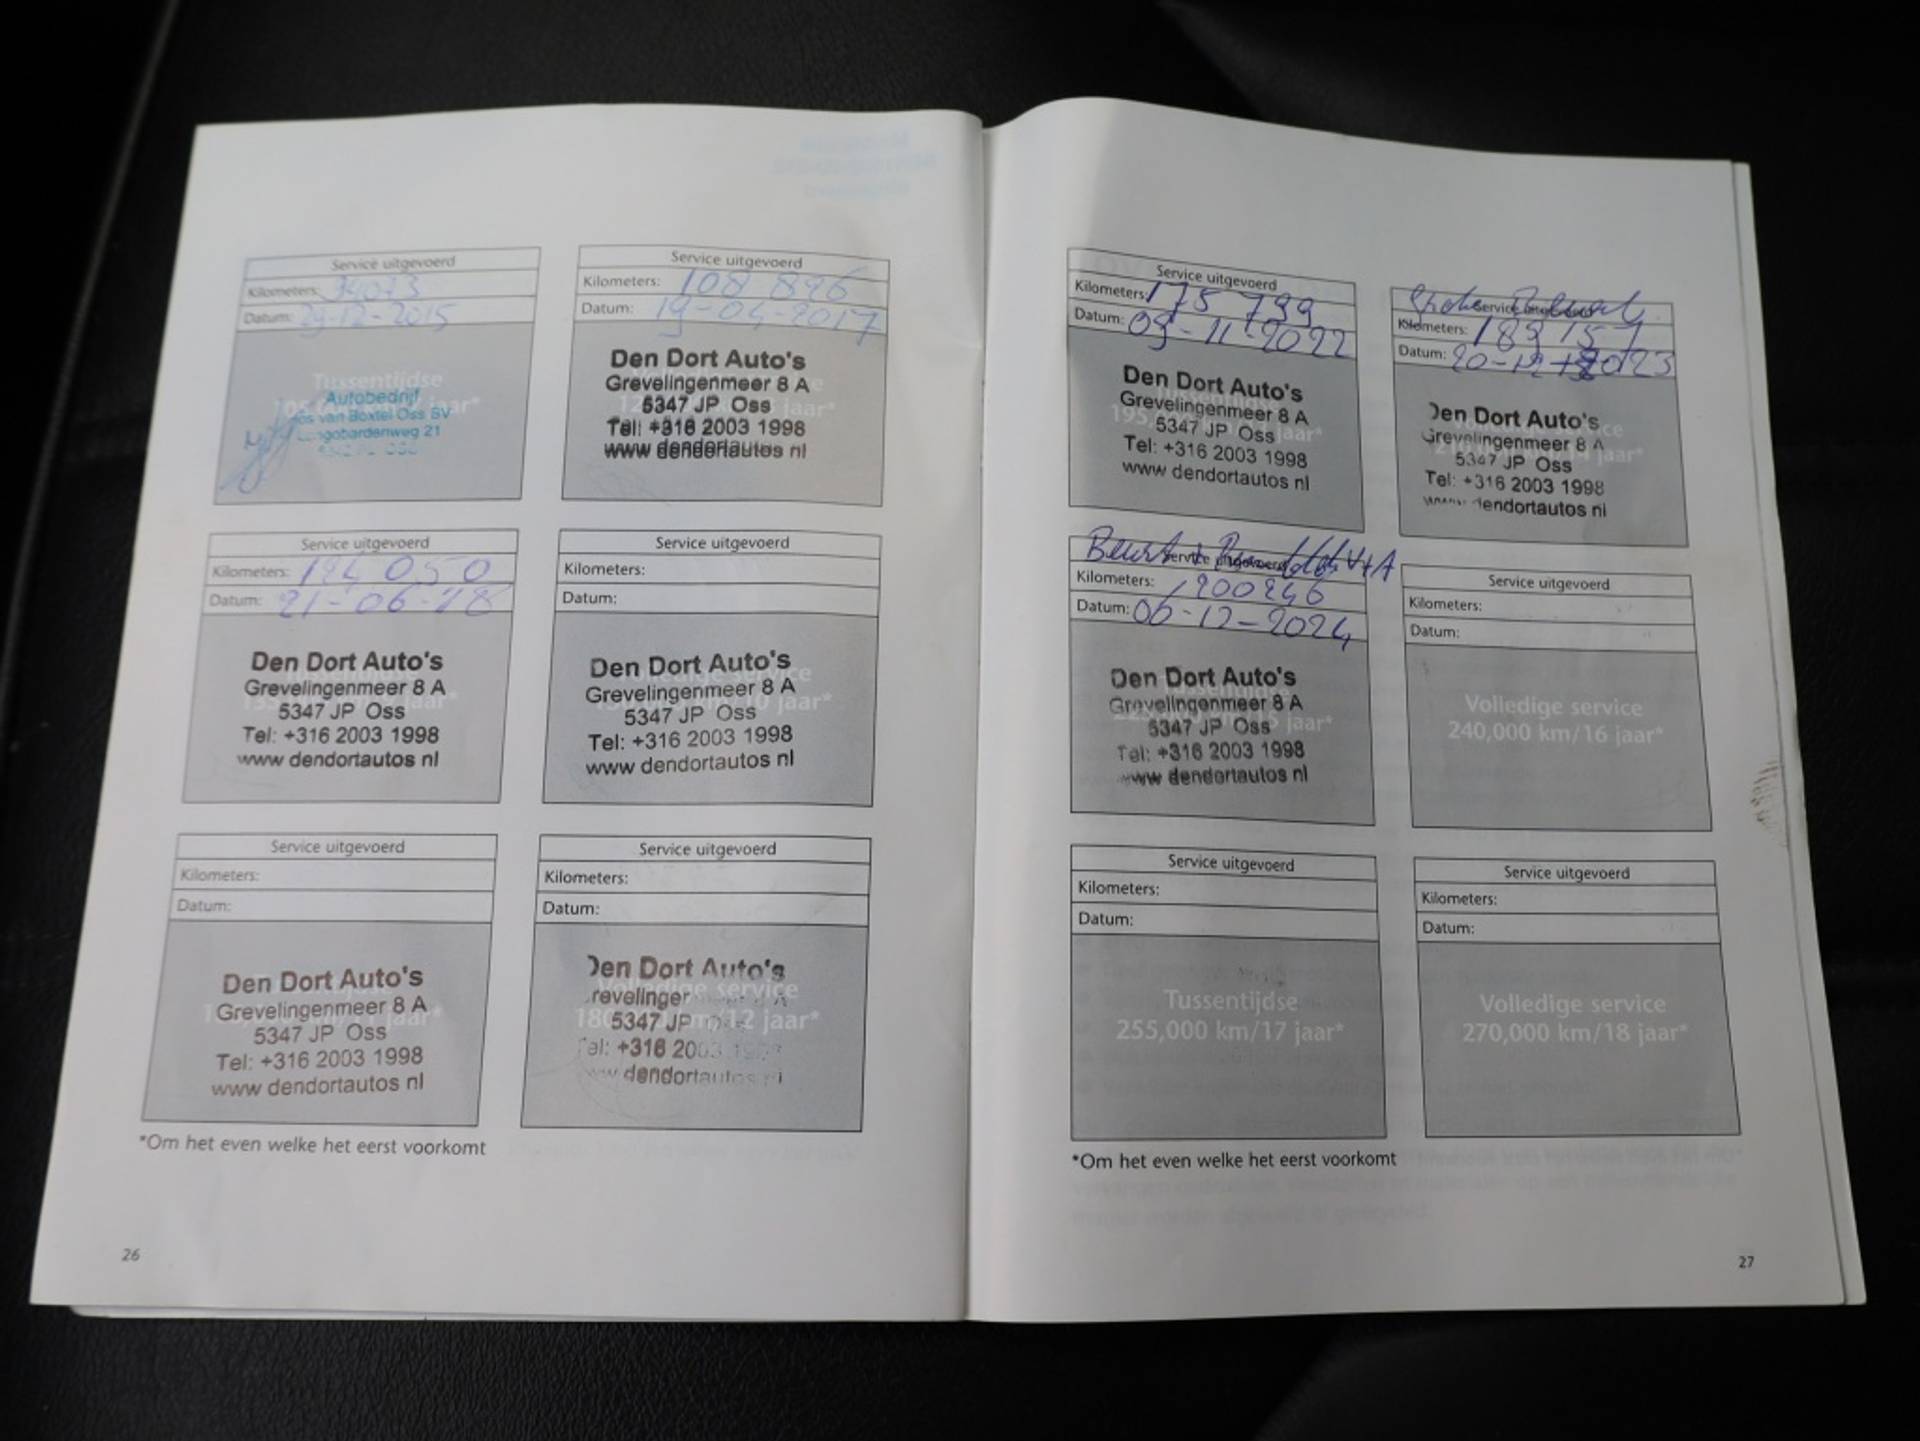 Service uitgevoerd
Kilometers: 94073
Datum: 29-12-2015
Tussentijdse
Autobedrijf
van Boxtel Oss BV
21
Service uitgevoerd
Kilometers: 108 896
Datum: 19-04-2017
Den Dort Auto's
Grevelingenmeer 8 A
5347 JP Oss
Tel: +316 2003 1998
www dendortautos nl
Service uitgevoerd
Kilometers: 124 050
Datum: 21-06-18
Den Dort Auto's
Grevelingenmeer 8 A
5347 JP Oss
Tel: +316 2003 1998
www dendortautos nl
Service uitgevoerd
Kilometers:
Datum:
Den Dort Auto's
Volledige service
Grevelingenmeer 8 A
5347 JP Oss
Tel: +316 2003 1998
www dendortautos nl
Service uitgevoerd
Kilometers:
Datum:
Den Dort Auto's
Grevelingenmeer 8 A
5347 JP Oss
Tel: +316 2003 1998
www dendortautos nl
Service uitgevoerd
Kilometers:
Datum:
Den Dort Auto's
Volledige service
5347 JP
+316
dendortautos
*Om het even welke het eerst voorkomt
26
Service uitgevoerd
Kilometers: 175 799
Datum: 09-11-2022
Den Dort Auto's
Grevelingenmeer 8 A
5347 JP Oss
Tel: +316 2003 1998
www dendortautos nl
Kilometers: 189 157
Datum: 20-12-2023
Den Dort Auto's
Grevelingenmeer 8 A
5347 JP Oss
Tel: +316 2003 1998
dendortautos nl
Beurt
Service uitgevoerd
Kilometers: 200246
Datum: 06-12-2024
Den Dort Auto's
Grevelingenmeer 8 A
5347 JP Oss
Tel: +316 2003 1998
www dendortautos nl
Service uitgevoerd
Kilometers:
Datum:
Volledige service
240,000 km/16 jaar*
Service uitgevoerd
Kilometers:
Datum:
Tussentijdse
255,000 km/17 jaar*
Service uitgevoerd
Kilometers:
Datum:
Volledige service
270,000 km/18 jaar*
*Om het even welke het eerst voorkomt
27